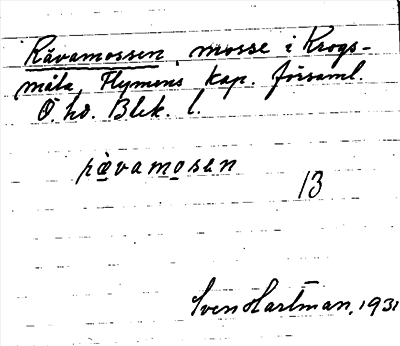 Rävamossen, mosse i Krogs-
måla, Flymens kap. församl.
Ö. hd. Blek. l.
rävamosen
13
Sven Hartman, 1931